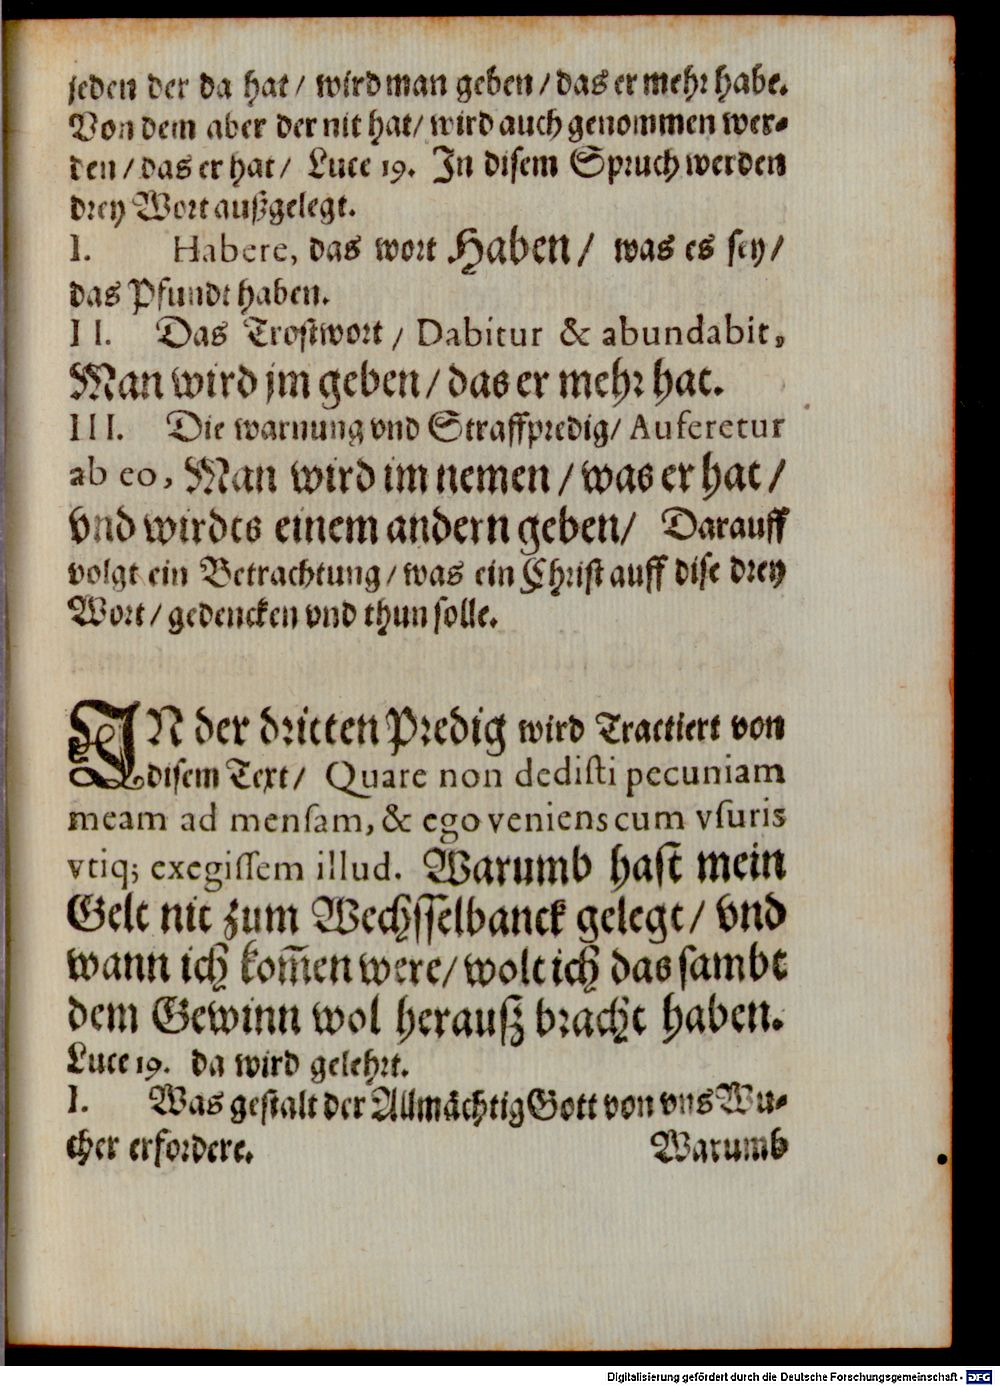 jeden der da hat / wird man geben / das er mehr habe.
Von dem aber der nit hat / wird auch genommen wer-
den / das er hat / Luce 19. In disem Spruch werden
drey Wort außgelegt.
I. Habere, das wort Haben / was es sey /
das Pfundt haben.
II. Das Trostwort / Dabitur & abundabit,
Man wird jm geben / das er mehr hat.
III. Die warnung vnd Straffpredig / Auferetur
ab eo, Man wird im nemen / was er hat /
vnd wirdts einem andern geben / Darauff
volgt ein Betrachtung / was ein Christ auff dise drey
Wort / gedencken vnd thun solle.
IN der dritten Predig wird Tractiert von
disem Text / Quare non dedisti pecuniam
meam ad mensam, & ego veniens cum vsuris
vtiq; exegissem illud. Warumb hast mein
Gelt nit zum Wechsselbanck gelegt / vnd
wann ich kom̃en were / wolt ich das sambt
dem Gewinn wol herauß bracht haben.
Luce 19. da wird gelehrt.
I. Was gestalt der Allmächtig Gott von vns Wu-
cher erfordere. Warumb
Digitalisierung gefördert durch die Deutsche Forschungsgemeinschaft - DFG